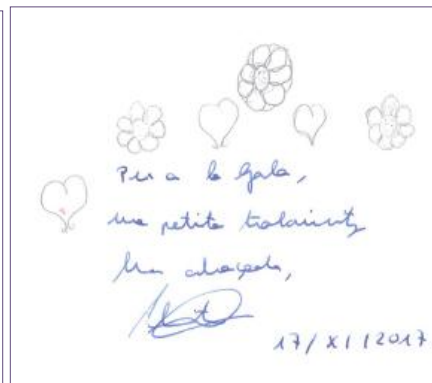 Per a la Gala,
una petita
Una abraçada,
17/XI/2017